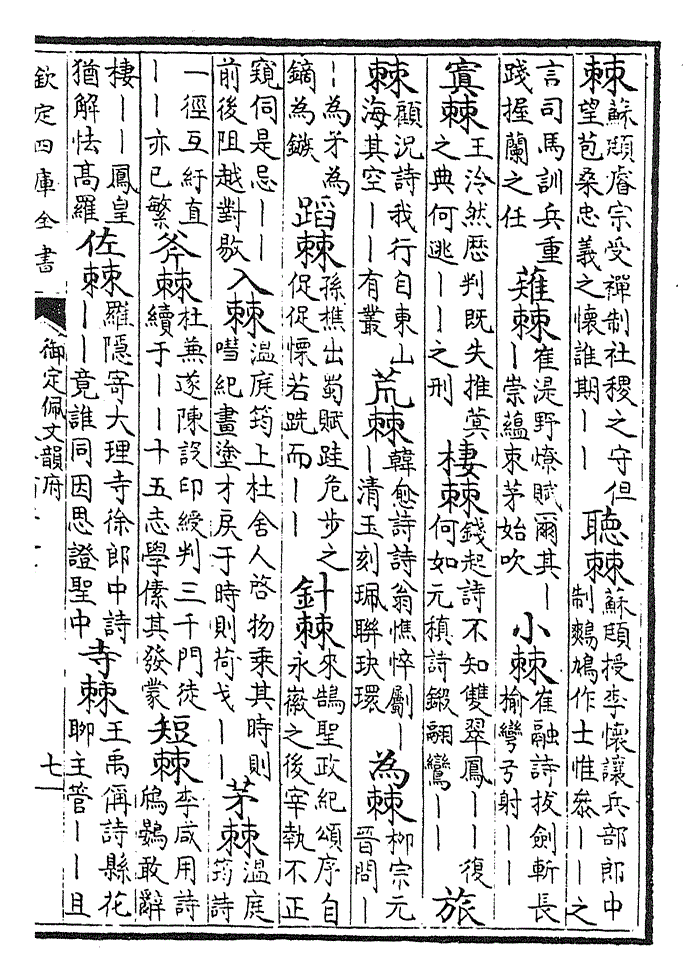 棘蘇頲睿宗受禪制社稷之守但望苞桑忠義之懷誰期一一　聽棘蘇頲授李懷讓兵部郎中制鷞鳩作士惟叅一一之
言司馬訓兵重踐握蘭之任　薙棘崔湜野燎賦爾其一一崇蘊束茅始吹　小棘崔融詩拔劍斬長榆彎弓射一一
寘棘王泠然歴判既失推莫之典何逃一一之刑　棲棘錢起詩不知雙翠鳳一一復何如元稹詩鎩翮鸞一一　旅
棘顧況詩我行自東山海其空一一有叢　荒棘韓愈詩詩翁憔悴劚一一清玉刻珮聯玦環　為棘柳宗元晉問一
一為矛為鏑為鏃　蹈棘孫樵出蜀賦跬危步之促促慄若跣而一一　針棘來鵠聖政紀頌序自永徽之後宰執不正
窺伺是忌一一前後阻越對敭　入棘温庭筠上杜舍人啓物乘其時則嘒紀畫塗才戾于時則荷戈一一　茅棘温庭筠詩
一徑互紆直一一亦已繁　斧棘杜兼遂陳設印綬判三千門徒續于一一十五志學傃其發蒙　短棘李咸用詩鴟鷃敢辭
棲一一鳳皇猶解怯髙羅　佐棘羅隱寄大理寺徐郎中詩一一竟誰同因思證聖中　寺棘王禹偁詩縣花聊主管一一且
欽定四庫全書
御定佩文韻府
七一